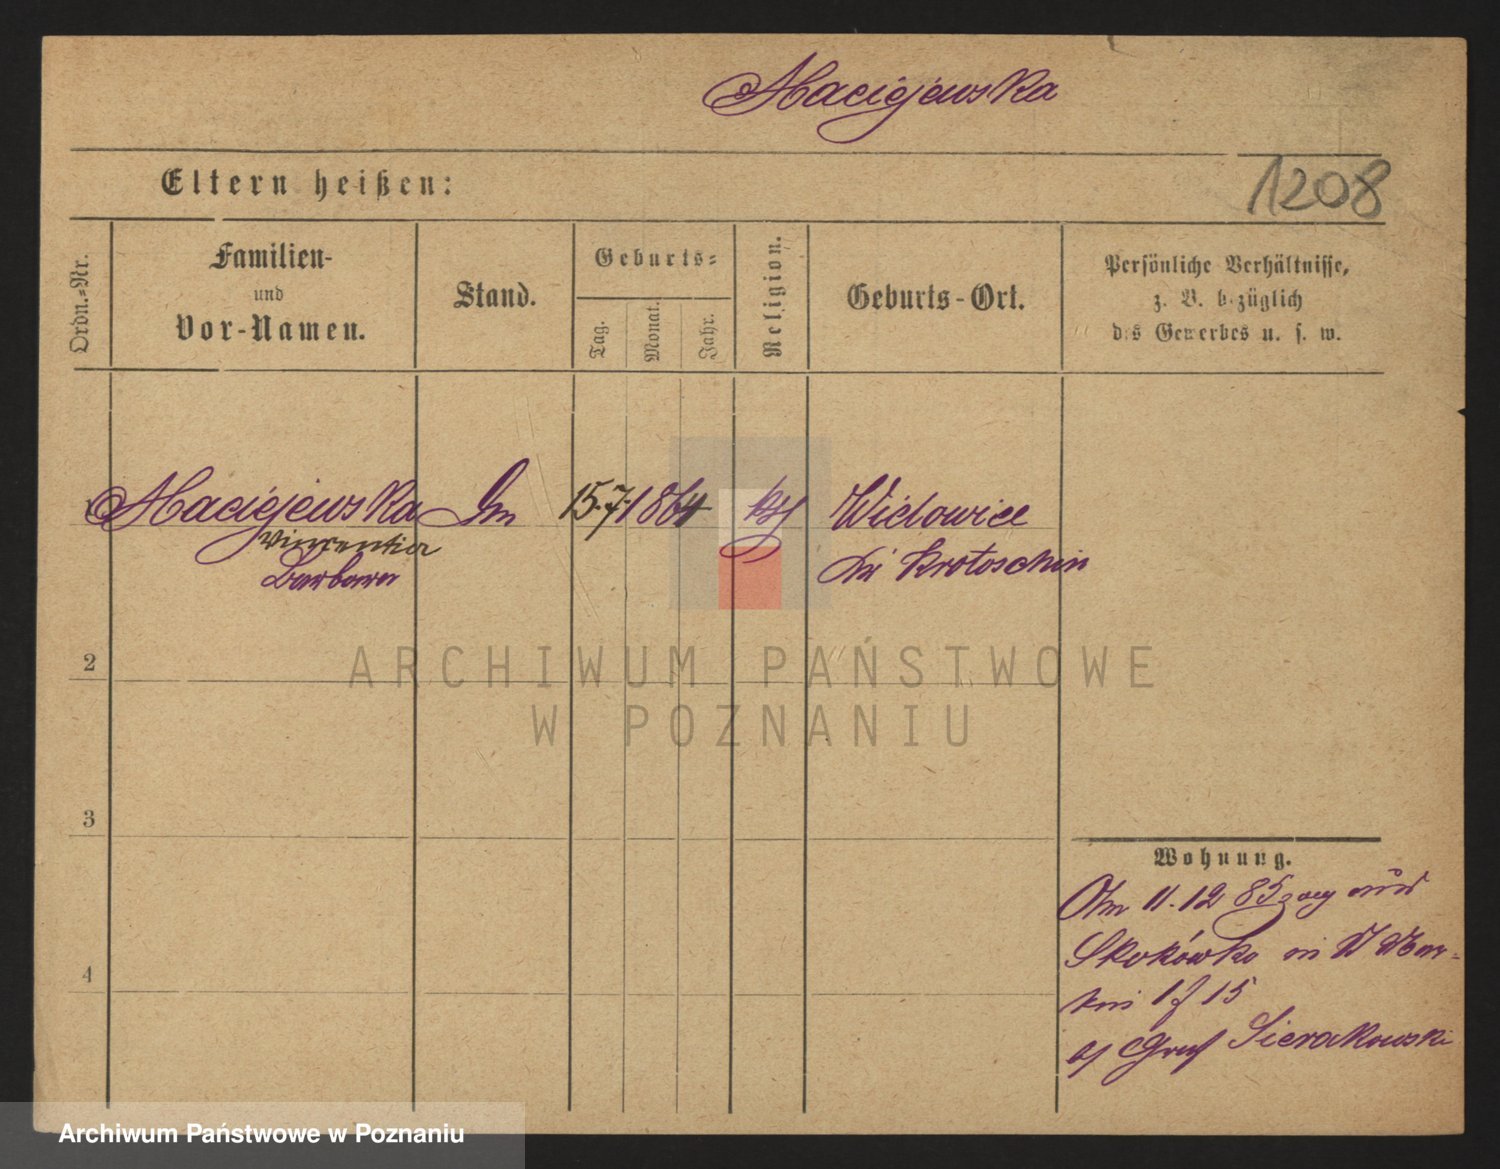 Maciejewska
Eltern heißen:
1208
Ordn.-Nr.
Familien-
und
Vor-Namen.
Stand.
Geburts-
Tag.
Monat.
Jahr.
Religion.
Geburts-Ort.
Persönliche Verhältnisse,
z. B. bezüglich
des Gewerbes u. s. w.
1 Maciejewska 15. 7. 1864 Widowice
Vincentia Krotoschin
Barbara
2
3
4
Wohnung.
11. 12 85 zog
Skokówko in
15
Graf Sierakowski
ARCHIWUM PAŃSTWOWE
W POZNANIU
Archiwum Państwowe w Poznaniu